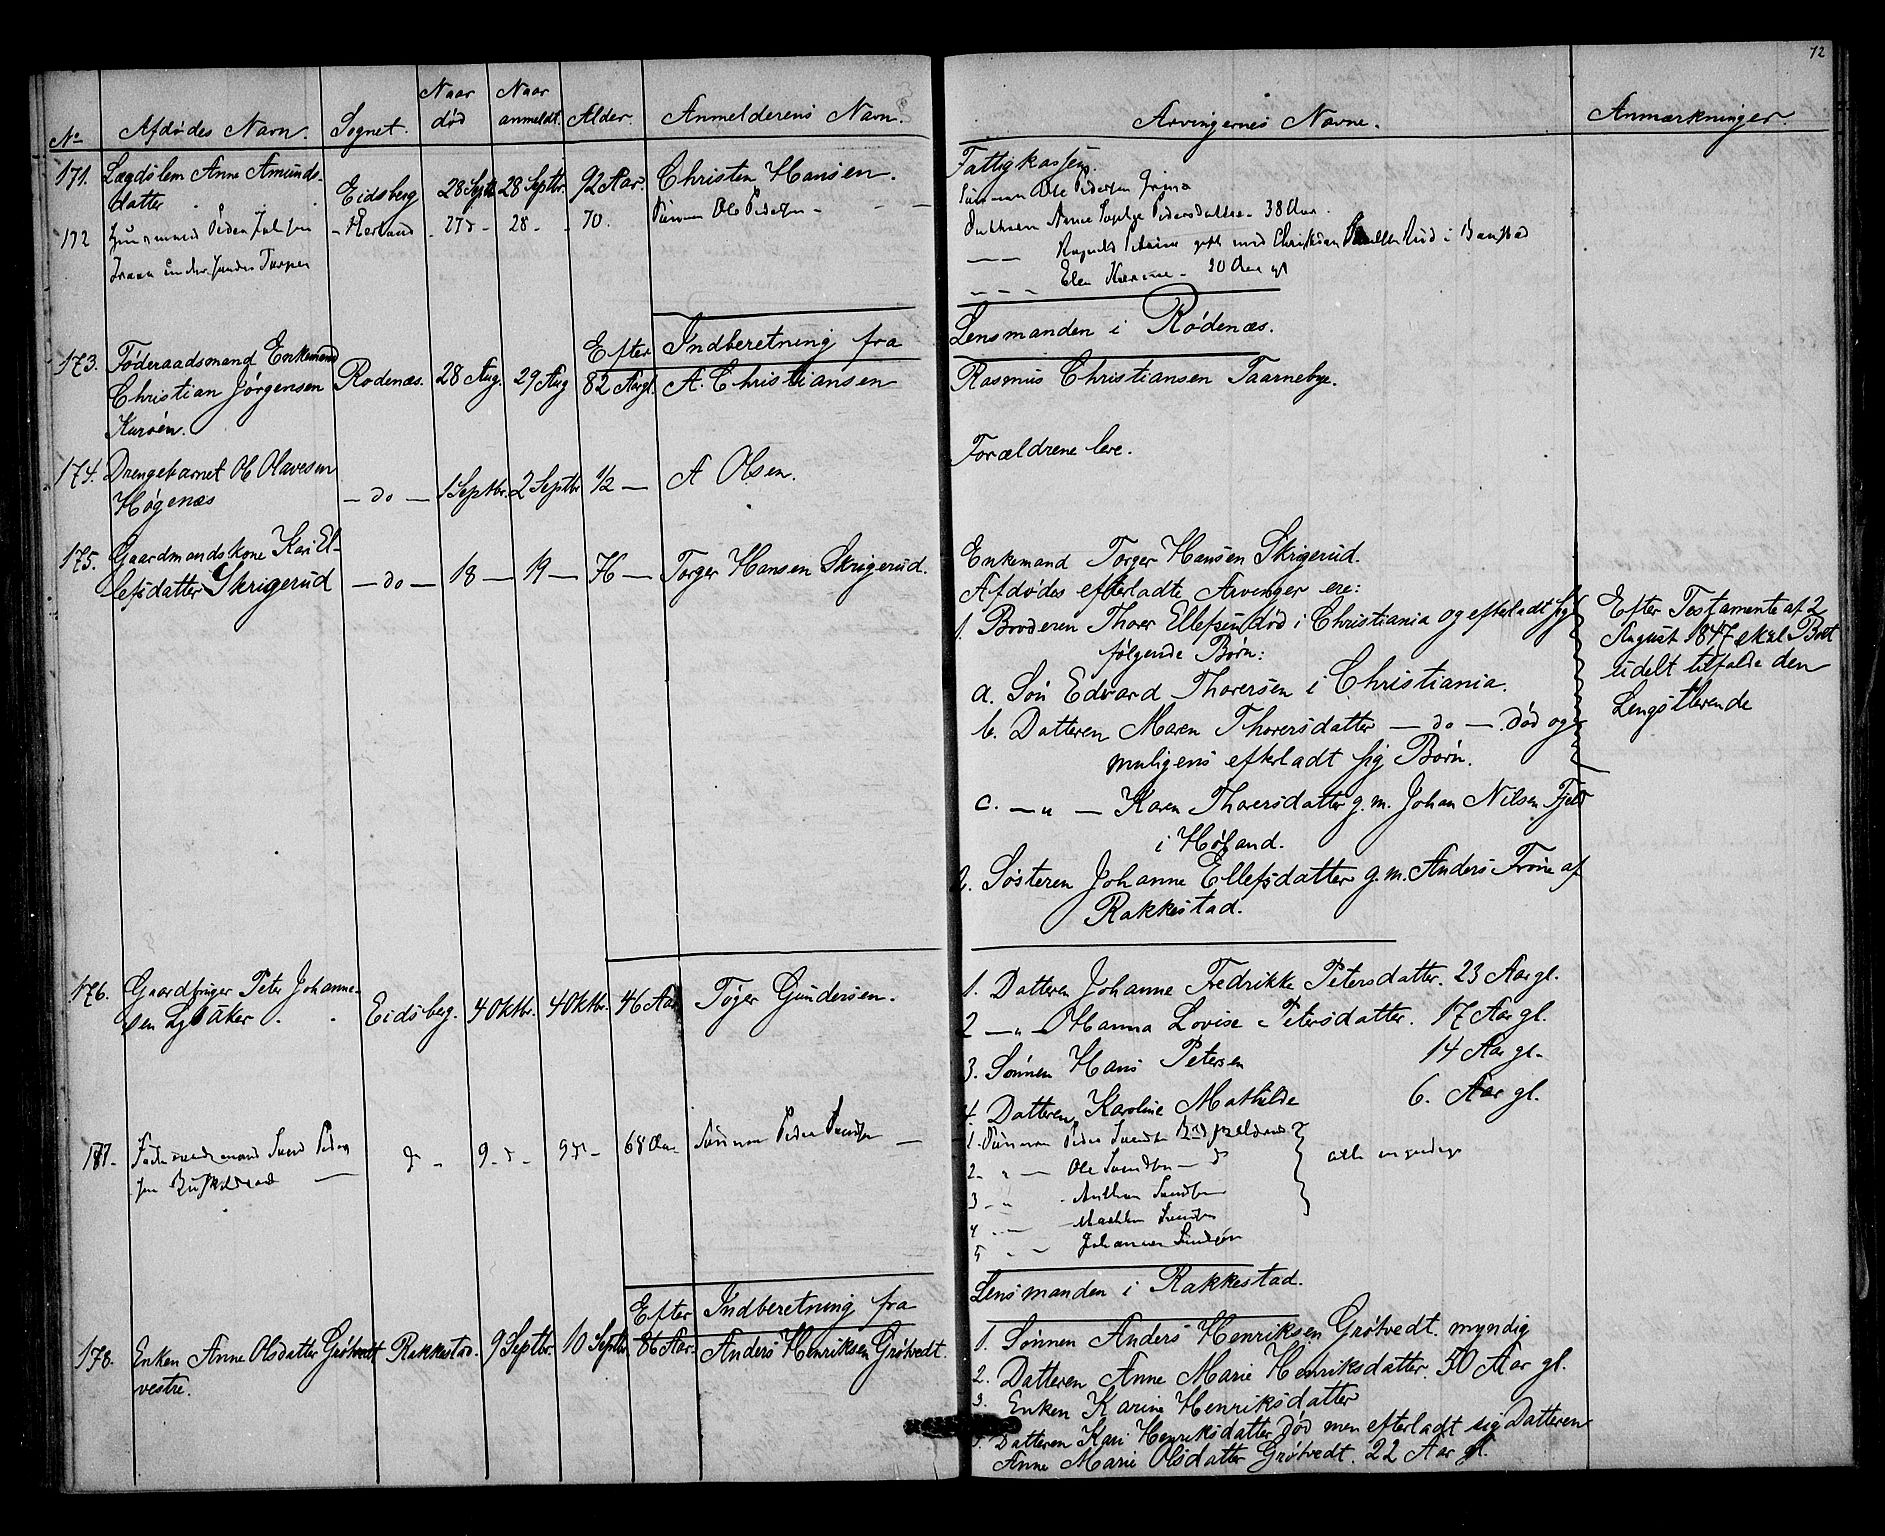 72
No Afdødes Navn. Sognet. Naar død Naar anmeldt. Alder. Anmelderens Navn. Arvingernes Navne. Anmærkninger.
171. Lægdslem Anne Amunds- Eidsberg 28 Septb. 28 Septbr. 92 Aar. Christen Hansen. Fattigkassen.
datter
172 Peder - 27 d - 28 - 70. Sønnen Ole Pedersen - Sønnen Ole Pedersen
Datteren Anne Pedersdatter - 38 Aar.
gift med Christian i
Elen - 20 Aar gl
Efter Indberetning fra Lensmanden i Rødenæs.
173. Føderaadsmand Enkemand Rødenæs. 28 Aug. 29 Aug 82 Aargl. A. Christiansen Rasmus Christiansen Taarnebye.
Christian Jørgensen
Kurøen.
174. Drengebarnet Ole Olavesen — do — 1 Septbr. 2 Septbr ½ — A Olsen. Forældrene leve.
Høgenæs
175. Gaardmandskone Kari El- — do — 18 — 19 — 76 — Torger Hansen Skrigerud. Enkemand Torger Hansen Skrigerud.
lefsdatter Skrigerud
Afdødes efterladte Arvinger ere:
1. Broderen Thorer Ellefsen død i Christiania og efterladt sig
følgende Børn:
a. Søn Edvard Thorersen i Christiania.
b. Datteren Maren Thorersdatter — do — død og
muligens efterladt sig Børn.
c. — " — Karen Thorersdatter g.m. Johan Nilsen Fjeld
i Høland.
2. Søsteren Johanne Ellefsdatter g.m. Anders Frøne af
Rakkestad.
Efter Testamente af 2
August 1847 skal Boet
udelt tilfalde den
Lengstlevende
176. Gaardbruger Peter Johanne- Eidsberg. 4 Oktbr. 4 Oktbr. 46 Aar Tøger Gundersen. 1. Datteren Johanne Fredrikke Petersdatter. 23 Aar gl.
sen
2 — " — Hanna Lovise Petersdatter. 17 Aar gl.
3. Sønnen Hans Petersen 14 Aar gl.
4. Datteren Karoline Mathilde 6. Aar gl.
177. Svend Peder d - 9 - d - 9 d - 68 Aar Sønnen Peder Svendsen — 1. Sønnen Peder Svendsen
sen
2 " — Ole Svendsen — d alle myndige
3 - " Anthon Svendsen
4 - — Svendsen
5 - - Johannes Svendsen
Efter Indberetning fra Lensmanden i Rakkestad.
178. Enken Anne Olsdatter Grøtvedt Rakkestad. 9 Septbr. 10 Septbr 86 Aar. Anders Henriksen Grøtvedt. 1. Sønnen Anders Henriksen Grøtvedt. myndig
vestre.
2. Datteren Anne Marie Henriksdatter. 50 Aar gl.
3. Enken Karine Henriksdatter
Datteren Kari Henriksdatter død men efterladt sig Datteren
Anne Marie Olsdatter Grøtvedt. 22 Aar gl.